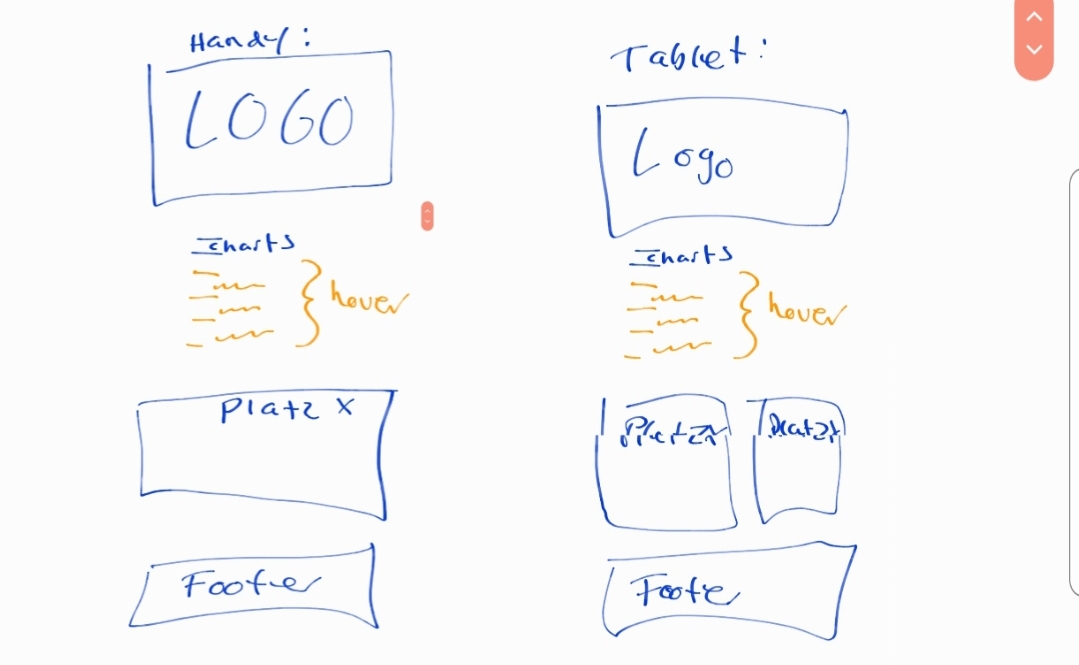 Handy:
LOGO
Charts
hover
Platz X
Footer
Tablet:
Logo
Charts
hover
Platz X
Platz Y
Footer